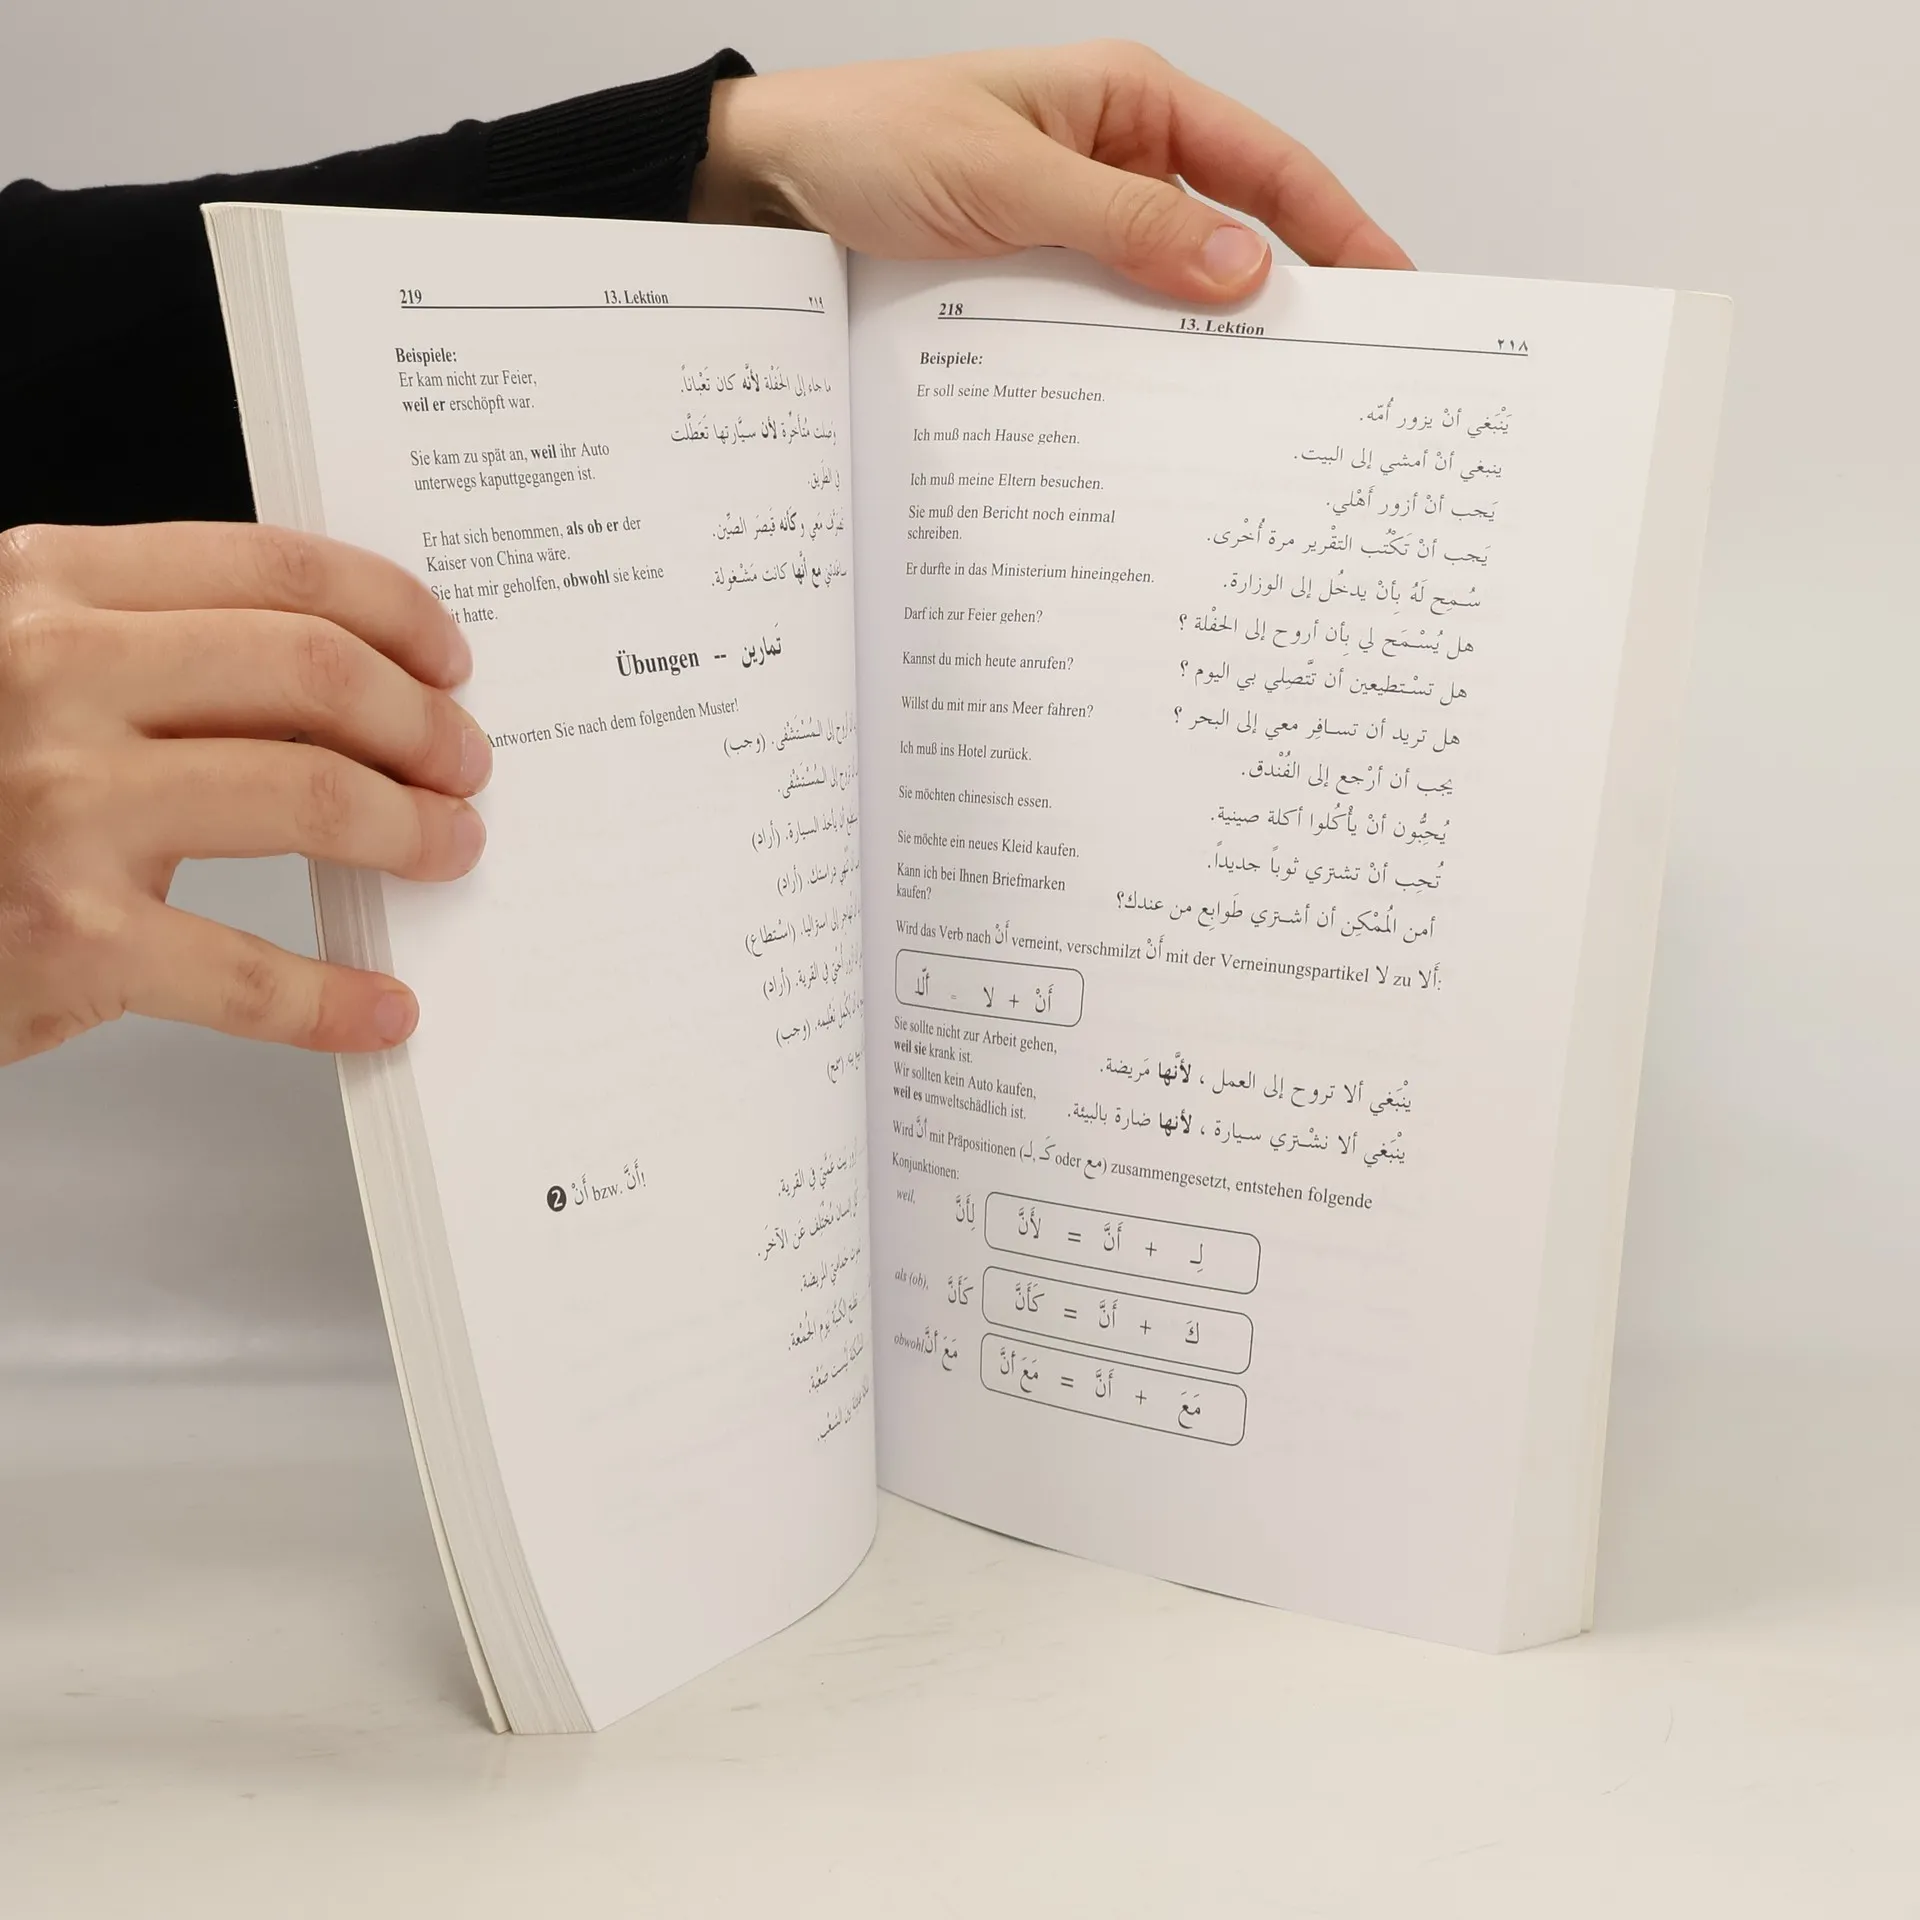 218 13. Lektion ٢١٨
Beispiele:
Er soll seine Mutter besuchen. يَنْبَغي أنْ يزور أُمّه.
Ich muß nach Hause gehen. ينبغي أنْ أمشي إلى البيت.
Ich muß meine Eltern besuchen. يَجب أنْ أزور أَهْلي.
Sie muß den Bericht noch einmal
schreiben. يَجب أنْ تَكْتُب التقْرير مرة أُخْرى.
Er durfte in das Ministerium hineingehen. سُمِح لَهُ بِأنْ يدخُل إلى الوزارة.
Darf ich zur Feier gehen? هل يُسْمَح لي بِأن أروح إلى الحفْلة ؟
Kannst du mich heute anrufen? هل تسْتطيعين أن تتَّصِلي بي اليوم ؟
Willst du mit mir ans Meer fahren? هل تريد أن تسافِر معي إلى البحر ؟
Ich muß ins Hotel zurück. يجب أن أرْجع إلى الفُنْدق.
Sie möchten chinesisch essen. يُحِبُّون أنْ يأْكُلوا أكلة صينية.
Sie möchte ein neues Kleid kaufen. تُحِب أنْ تشتري ثوباً جديداً.
Kann ich bei Ihnen Briefmarken
kaufen? أمن الُمْكِن أن أشتري طَوابِع من عندك؟
Wird das Verb nach أَنْ verneint, verschmilzt أَنْ mit der Verneinungspartikel لا zu أَلا:
أَنْ + لا = ألّا
Sie sollte nicht zur Arbeit gehen,
weil sie krank ist. ينْبَغي ألا تروح إلى العمل ، لأنَّها مَريضة.
Wir sollten kein Auto kaufen,
weil es umweltschädlich ist. ينْبَغي ألا نشْتري سيارة ، لأنها ضارة بالبيئة.
Wird أَنَّ mit Präpositionen (لـ, كَـ oder مع) zusammengesetzt, entstehen folgende
Konjunktionen:
weil, لِأَنَّ لِـ + أَنَّ = لأَنَّ
als (ob), كَأَنَّ كَ + أَنَّ = كَأَنَّ
obwohl مَعَ أَنَّ مَعَ + أَنَّ = مَعَ أَنَّ
219 13. Lektion ٢١٩
Beispiele:
Er kam nicht zur Feier,
weil er erschöpft war. ما جاء إلى الحَفْلة لأنَّه كان تَعْباناً.
Sie kam zu spät an, weil ihr Auto وَصلت مُتأخِّرة لأن سيَّارتها تَعَطَّلت
unterwegs kaputtgegangen ist. في الطَّريق.
Er hat sich benommen, als ob er der مَعي وكَأنَّه قَيصَر الصِّين.
Kaiser von China wäre.
Sie hat mir geholfen, obwohl sie keine مع أنَّها كانت مَشْغولة.
hatte.
Übungen -- تَمارين
Antworten Sie nach dem folgenden Muster!
أروح إلى الـمُسْتَشْفى. (وجب)
إلى الـمُسْتَشْفى.
أن يأخذ السيارة. (أراد)
دراستك. (أراد)
إلى استراليا. (اسْتطاع)
في القرية. (أراد)
تعْليمه. (وجب)
❷ أَنْ bzw. أَنَّ!
بيت عَمَّتي في القرية.
مُخْتَلِف عَن الآخَر.
المريضة.
يَوم الجُمْعة.
صَعْبة.